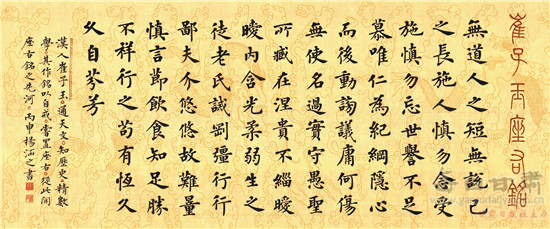 崔子玉座右銘
無道人之短無說己
之長施人慎勿念受
施慎勿忘世譽不足
慕唯仁為紀綱隱心
而後動謗議庸何傷
無使名過實守愚聖
所臧在涅貴不緇曖
曖內含光柔弱生之
徒老氏誡剛彊行行
鄙夫介悠悠故難量
慎言節飲食知足勝
不祥行之苟有恆久
久自芬芳
漢人崔子玉通天文知歷史精數
學其作銘以自戒嘗置座右從此開
座右銘之先河丙申楊涵之書